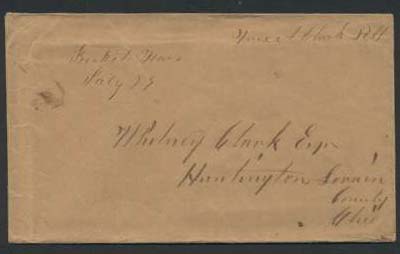 Clark
July 29
Whitney Clark Esqr
Huntington Lorain
County
Ohio